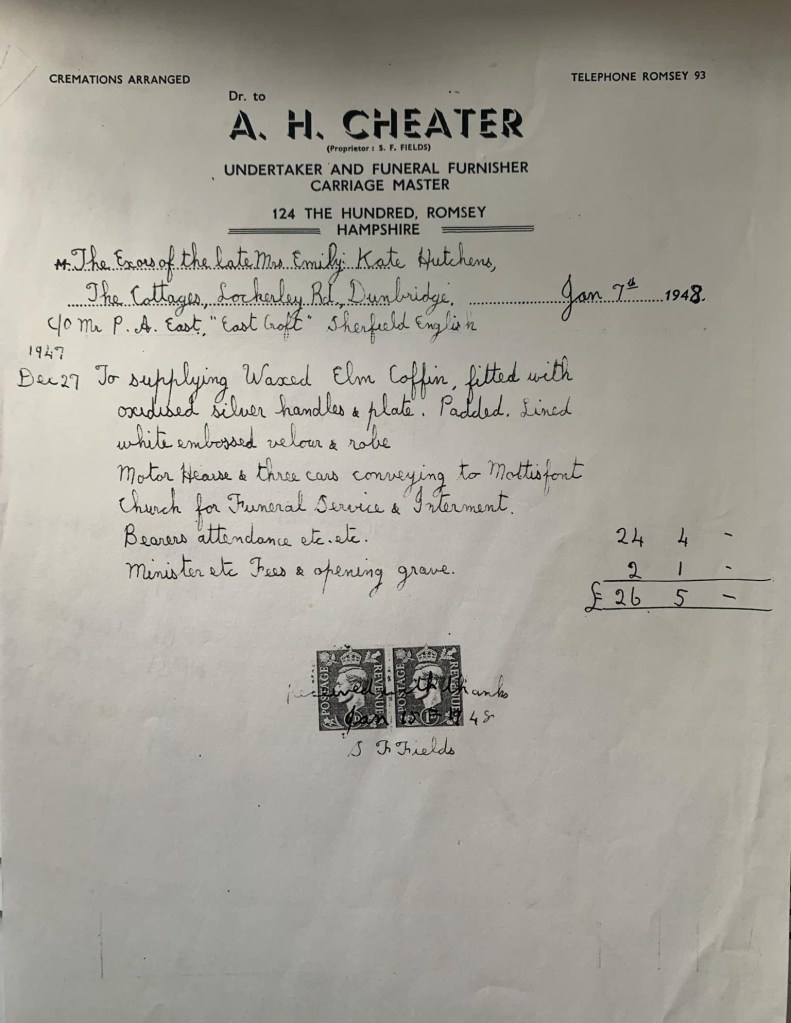 CREMATIONS ARRANGED
TELEPHONE ROMSEY 93
Dr. to
A. H. CHEATER
(Proprietor : S. F. FIELDS)
UNDERTAKER AND FUNERAL FURNISHER
CARRIAGE MASTER
124 THE HUNDRED, ROMSEY
HAMPSHIRE
M The Exors of the late Mrs Emily Kate Hutchens,
The Cottages, Lockerley Rd, Dunbridge. Jan 7th 1948.
c/o Mr P. A. East, "East Croft" Sherfield English
1947
Dec 27 To supplying Waxed Elm Coffin, fitted with
oxidised silver handles & plate. Padded. Lined
white embossed velour & robe
Motor Hearse & three cars conveying to Mottisfont
Church for Funeral Service & Interment.
Bearers attendance etc. etc. 24 4 -
Minister etc Fees & opening grave. 2 1 -
£ 26 5 -
POSTAGE REVENUE POSTAGE REVENUE
received with thanks
Jan 15th 1948
S F Fields